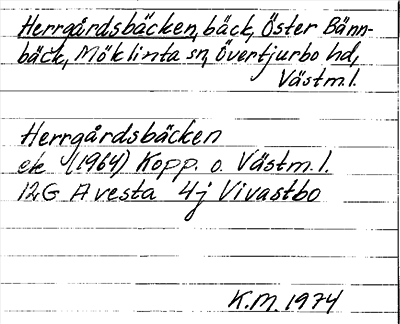 Herrgårdsbäcken, bäck, Öster Bänn-
bäck, Möklinta sn, Övertjurbo hd,
Västm.l.
Herrgårdsbäcken
ek (1964) Kopp. o. Västm.l.
12G Avesta 4j Vivastbo
K.M. 1974